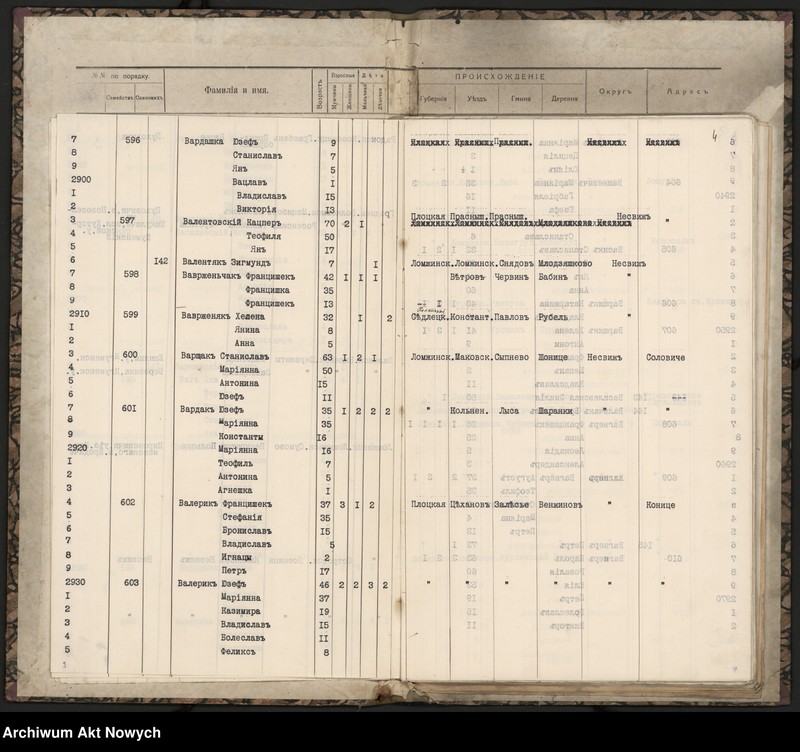 №№ по порядку.
Семействъ. Одинокихъ.
Фамилія и имя.
Возрастъ
Взрослые
Мужчины
Женщины
Дѣти
Мальчики
Дѣвочки
ПРОИСХОЖДЕНІЕ
Губернія
Уѣздъ
Гмина
Деревня
Округъ
Адресъ
4
7 596 Вардашка Юзефъ 9
8 Станиславъ 7
9 Янъ 5
2900 Вацлавъ I
I Владиславъ I5
2 Викторія I3
3 597 Валентовскій Кацперъ 70 2 I Плоцкая Прасныш. Прасныш. Несвижъ "
4 Теофиля 50
5 Янъ I7
6 I42 Валентякъ Зигмундъ 7 I Ломжинск. Ломжинск. Снядовъ Млодзяшково Несвижъ
7 598 Вавржен­ьчакъ Францишекъ 42 I I I Вѣтровъ Червинъ Бабинъ "
8 Францишка 35
9 Францишекъ I3
29I0 599 Вавржен­якъ Хелена 32 I 2 Сѣдлецк. Констант. Павловъ Рубель "
I Янина 8
2 Анна 5
3 600 Варщакъ Станиславъ 63 I 2 I Ломжинск. Маковск. Сыпнево Шонице Несвижъ Соловиче
4 Маріянна 50
5 Антонина I5
6 Юзефъ II
7 60I Вардакъ Юзефъ 35 I 2 2 2 " Кольнен. Лыса Шаранки " "
8 Маріянна 35
9 Константы I6
2920 Маріянна I6
I Теофиль 7
2 Антонина 5
3 Агнешка I
4 602 Валерикъ Францишекъ 37 3 I 2 Плоцкая Цѣхановъ Залѣсье Венминовъ " Конице
5 Стефанія 35
6 Брониславъ I5
7 Владиславъ 5
8 Игнацы 2
9 Петръ I7
2930 603 Валерикъ Юзефъ 46 2 2 3 2 " " " " " "
I Маріянна 37
2 Казимира I9
3 Владиславъ I5
4 Болеславъ II
5 Феликсъ 8
Archiwum Akt Nowych